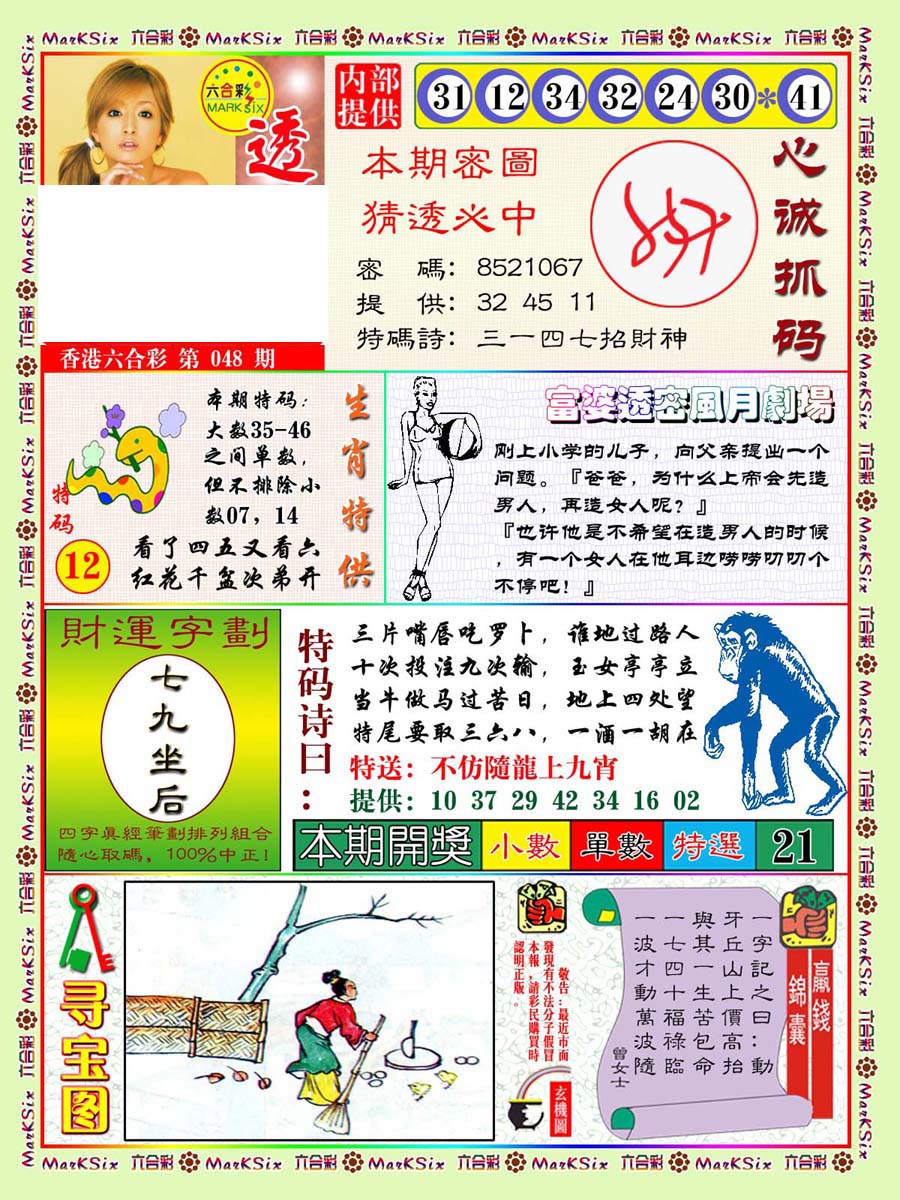 MarKSix 六合彩 MarKSix 六合彩 MarKSix 六合彩 MarKSix 六合彩 MarKSix 六合彩
六合彩
MARK six
透
内部
提供
31 12 34 32 24 30 * 41
本期密圖
猜透必中
密 碼: 8521067
提 供: 32 45 11
特碼詩: 三一四七招財神
心诚抓码
香港六合彩 第 048 期
本期特码:
大数35-46
之间单数,
但不排除小
数07, 14
看了四五又看六
红花千盆次弟开
特码
12
生肖特供
富婆透密風月劇場
刚上小学的儿子，向父亲提出一个
问题。『爸爸，为什么上帝会先造
男人，再造女人呢？』
『也许他是不希望在造男人的时候
，有一个女人在他耳边唠唠叨叨个
不停吧！』
財運字劃
七九坐后
四字眞經筆劃排列組合
隨心取碼，100%中正!
特码诗曰:
三片嘴唇吃罗卜，谁地过路人
十次投注九次输，玉女亭亭立
当牛做马过苦日，地上四处望
特尾要取三六八，一酒一胡在
特送: 不仿隨龍上九宵
提供: 10 37 29 42 34 16 02
本期開獎 小數 單數 特選 21
寻宝图
敬告:最近市面
發現有不法分子假冒
本報,請彩民購買時
認明正版。
玄機圖
一字記之曰:動
牙丘山上價高抬
與其一生苦包命
一七四十福祿臨
一波才動萬波隨
曾女士
贏錢
錦囊
MarKSix 六合彩 MarKSix 六合彩 MarKSix 六合彩 MarKSix 六合彩 MarKSix 六合彩